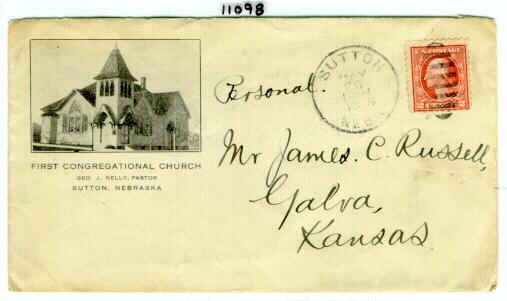 11098
FIRST CONGREGATIONAL CHURCH
GEO. J. KELLY, PASTOR
SUTTON, NEBRASKA
SUTTON
NEBR.
U.S. POSTAGE
2 CENTS 2
Personal.
Mr James. C. Russell,
Galva,
Kansas.